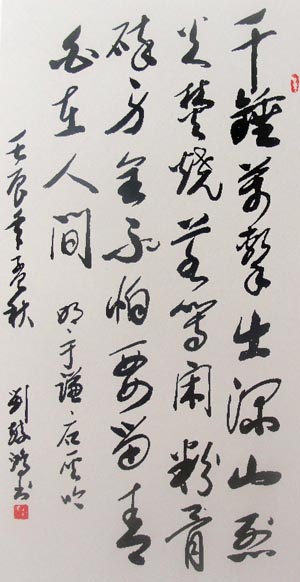 千錘萬擊出深山烈
火焚燒若等闲粉骨
碎身全不怕要留青
白在人間 明·于謙·石灰吟
壬辰年孟秋 劉鸿书